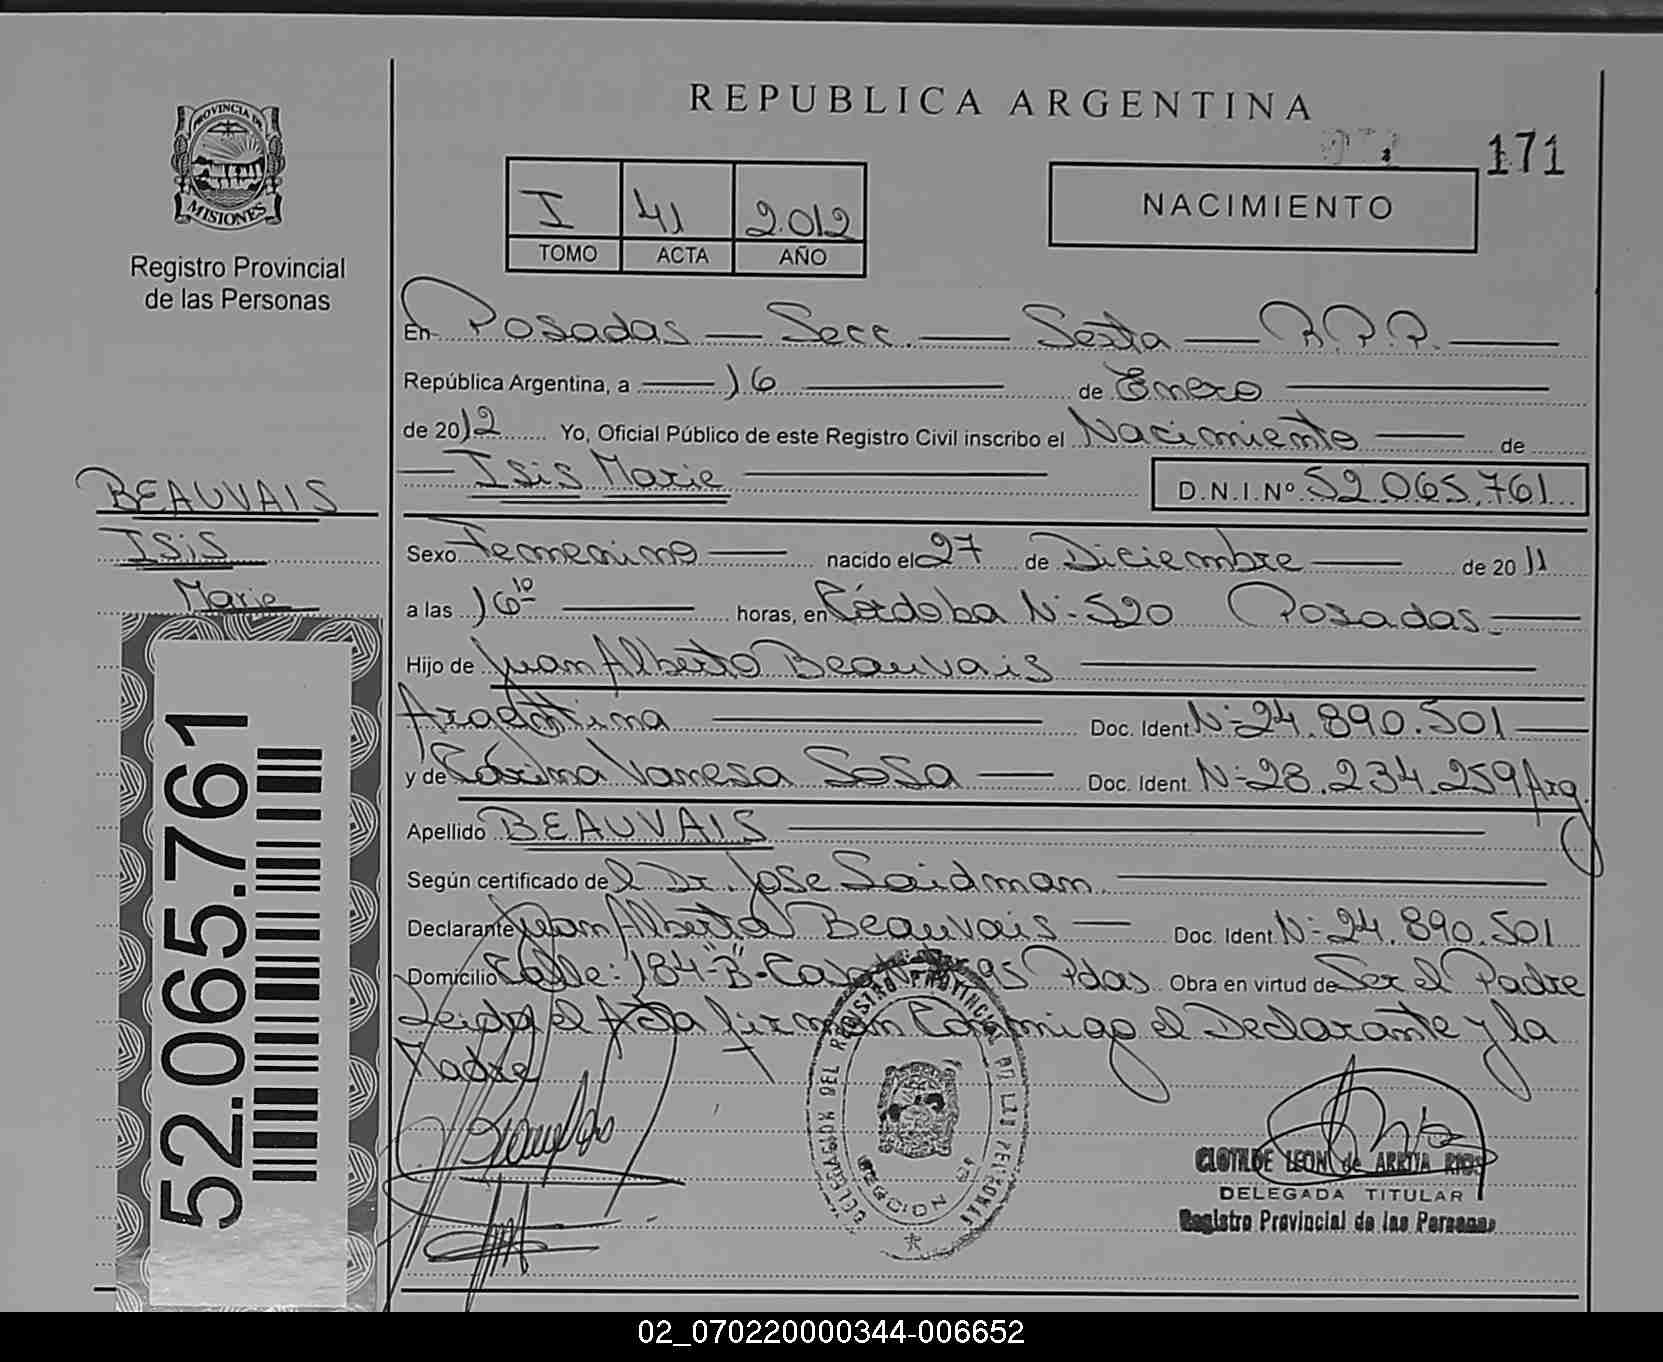 REPUBLICA ARGENTINA
171
PROVINCIA DE
MISIONES
Registro Provincial
de las Personas
I 41 2.012
TOMO ACTA AÑO
NACIMIENTO
En Posadas — Secc. — Sexta — R.P.P. —
República Argentina, a — 16 — de Enero —
de 2012 Yo, Oficial Público de este Registro Civil inscribo el Nacimiento — de
— Isis Marie — D.N.I.Nº 52.065.761
BEAUVAIS
Isis
Marie
Sexo Femenino — nacido el 27 de Diciembre — de 2011
a las 16 10 — horas, en Córdoba Nº 520 Posadas. —
Hijo de Juan Alberto Beauvais —
Argentina — Doc. Ident Nº 24.890.501 —
y de Vanesa Sosa — Doc. Ident. Nº 28.234.259 Arg.
Apellido BEAUVAIS —
Según certificado del Dr. Jose Saidman —
Declarante Juan Alberto Beauvais — Doc. Ident. Nº 24.890.501
Domicilio Calle: 184-"B"- Casa 95 Pdas. Obra en virtud de Ser el Padre
Leida el Acta firman Conmigo el Declarante y la
Madre
52.065.761
DELEGACION DEL REGISTRO PROVINCIAL DE LAS PERSONAS
CLOTILDE LEON de
DELEGADA TITULAR
Registro Provincial de las Personas
02_070220000344-006652